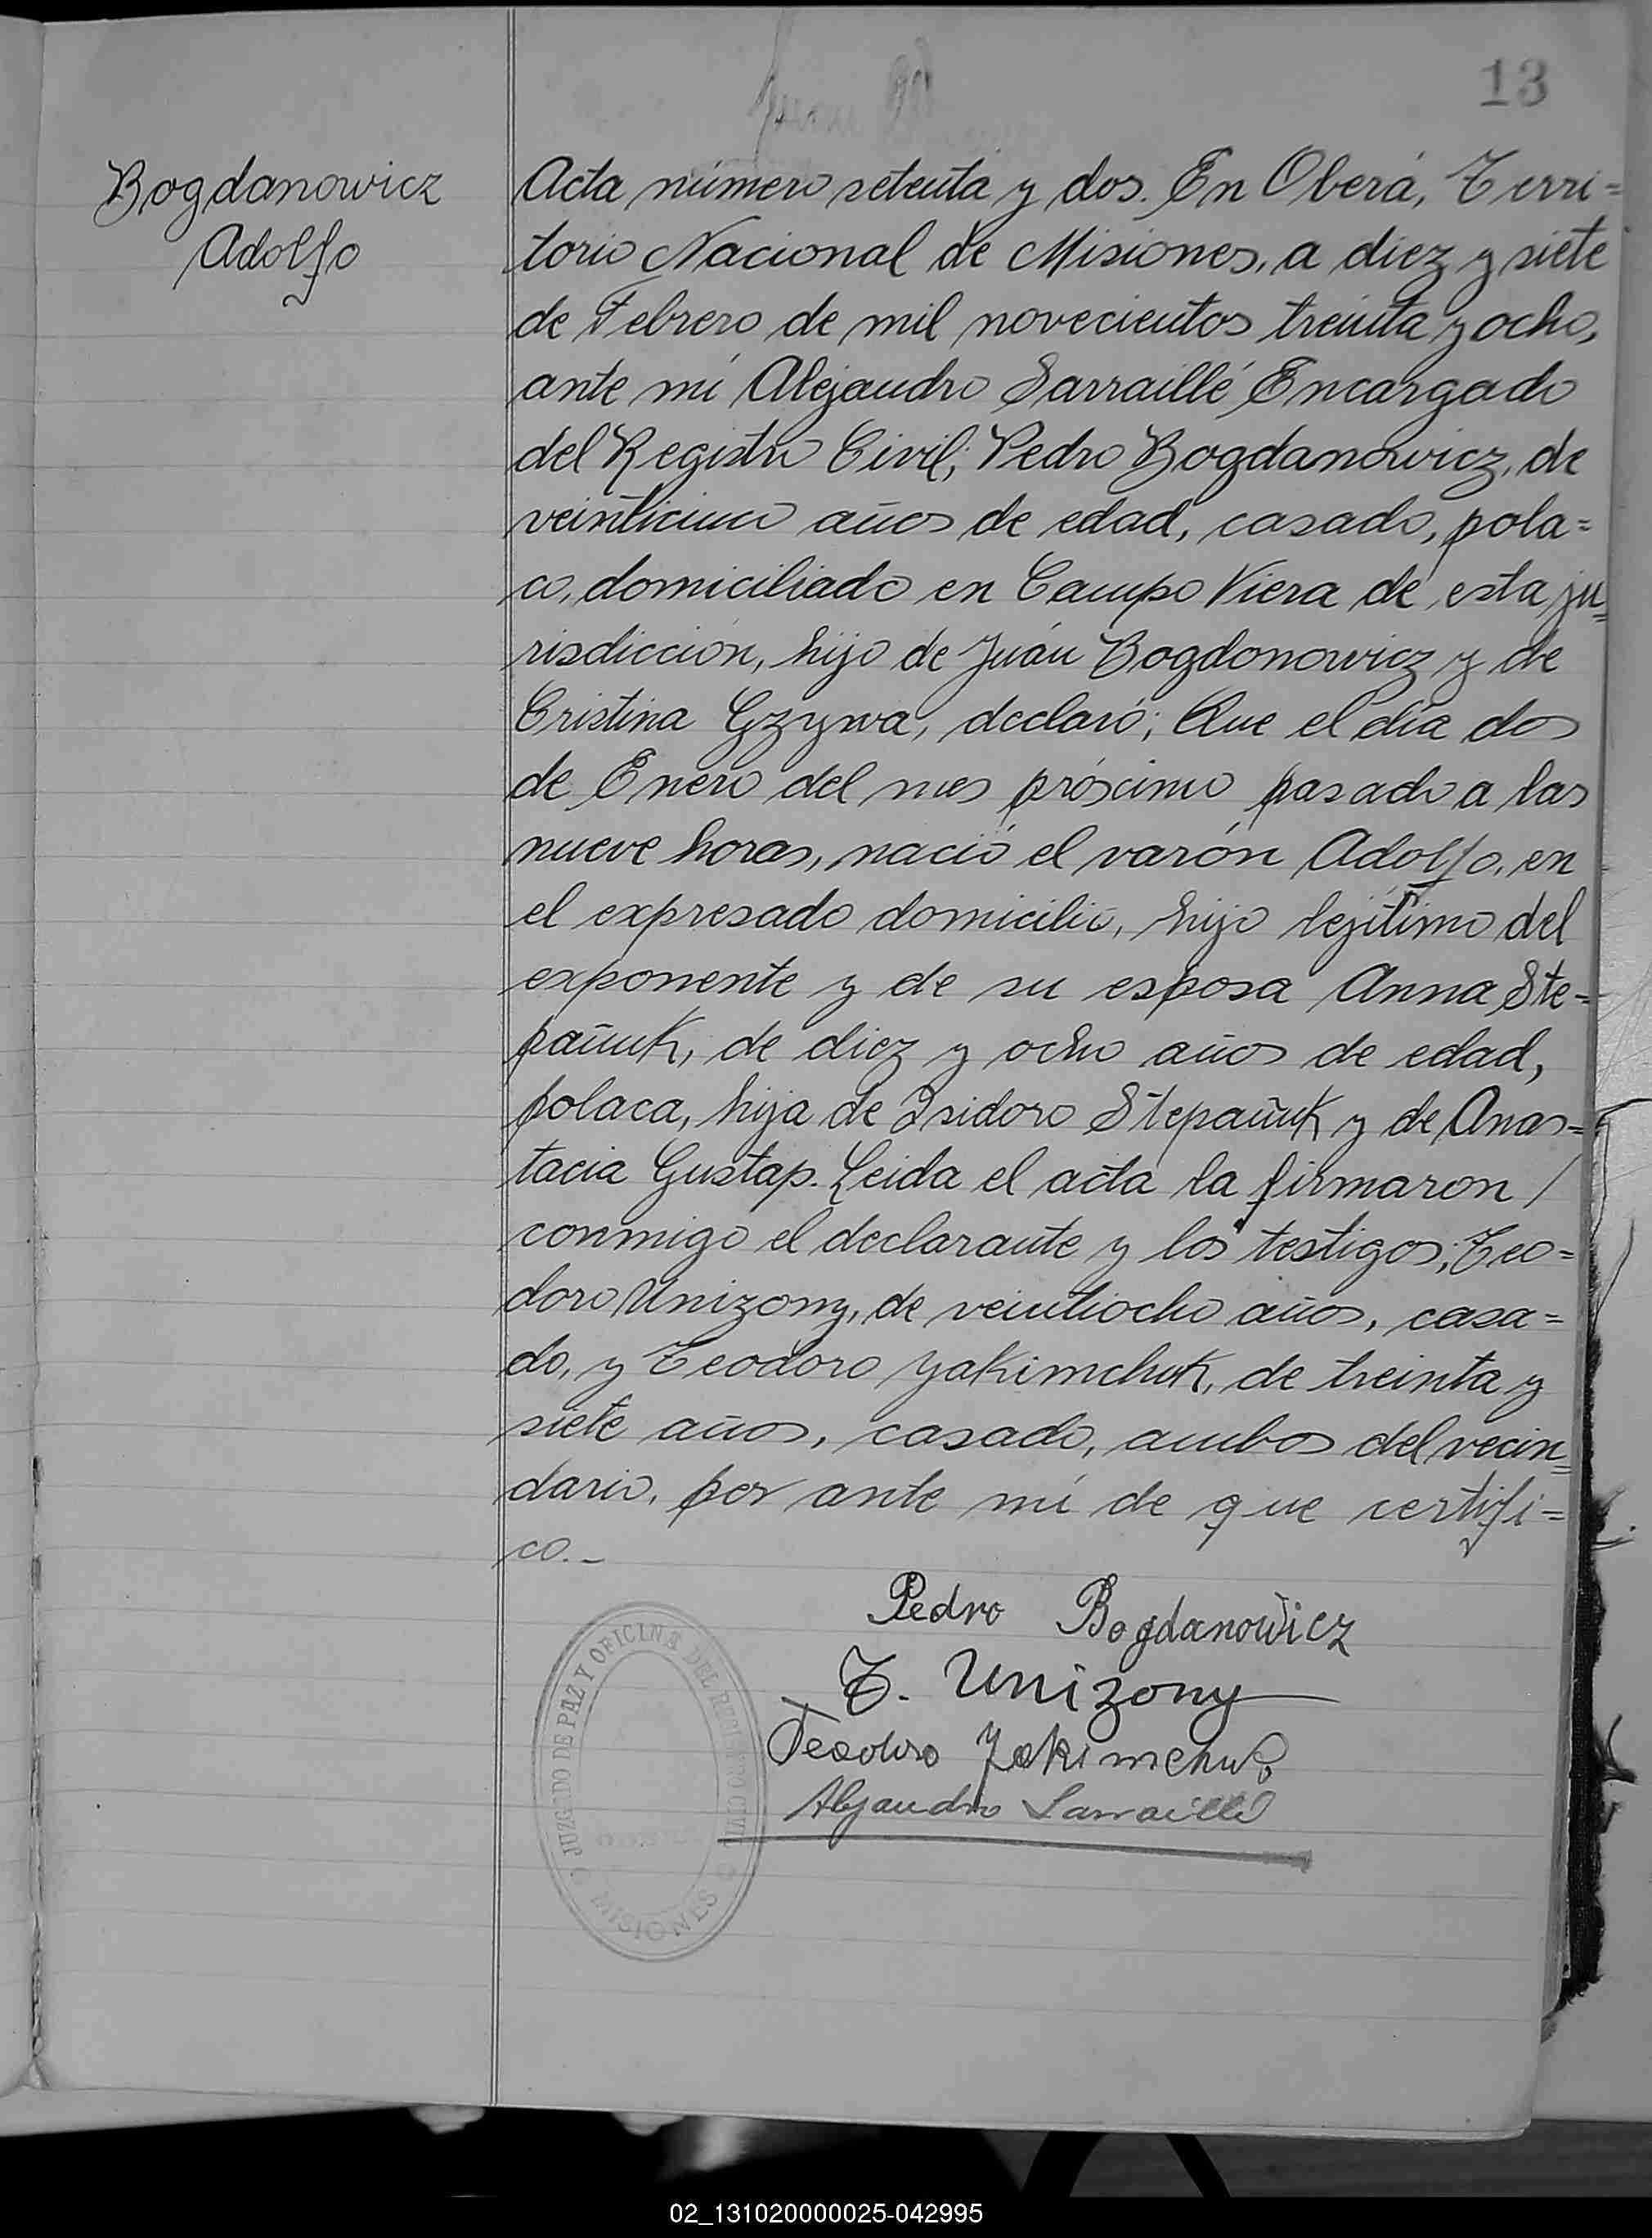 13
Bogdanowicz
Adolfo
Acta número setenta y dos. En Oberá, Terri=
torio Nacional de Misiones, a diez y siete
de Febrero de mil novecientos treinta y ocho,
ante mí Alejandro Sarraillé Encargado
del Registro Civil; Pedro Bogdanowicz, de
veinticinco años de edad, casado, pola=
co, domiciliado en Campo Viera de esta ju=
risdicción, hijo de Juan Bogdonowicz y de
Cristina Gzywa, declaró; Que el día dos
de Enero del mes próximo pasado a las
nueve horas, nació el varón Adolfo, en
el expresado domicilio, hijo lejítimo del
exponente y de su esposa Anna Ste=
pañuk, de diez y ocho años de edad,
polaca, hija de Isidoro Stepañuk y de Anas=
tacia Gustap. Leida el acta la firmaron /
conmigo el declarante y los testigos; Teo=
doro Unizony, de veintiocho años, casa=
do, y Teodoro Yakimchuk, de treinta y
siete años, casado, ambos del vecin=
dario, por ante mí de que certifi=
co.-
Pedro Bogdanowicz
T. Unizony
Teodoro Jakimchuk
Alejandro Sarraillé
JUZGADO DE PAZ Y OFICINA DEL REGISTRO CIVIL
MISIONES
02_131020000025-042995